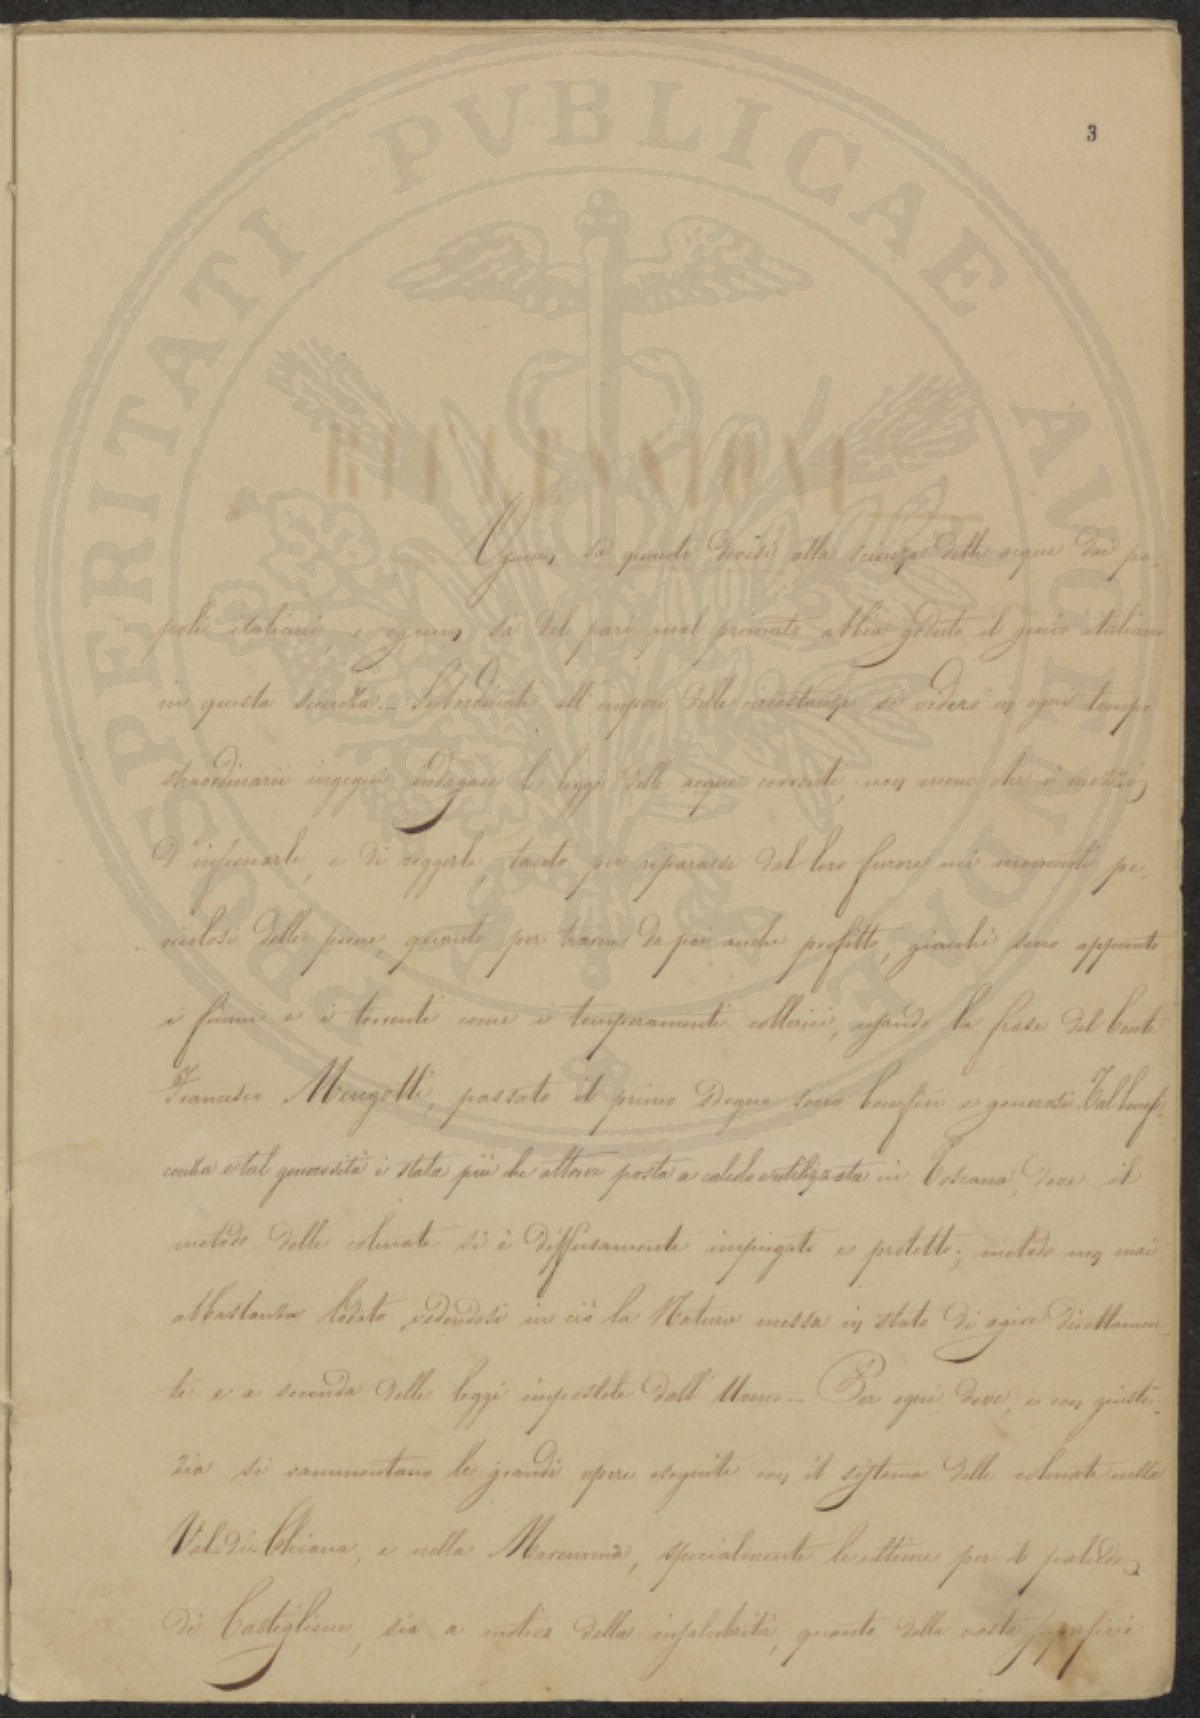 3
PROSPERITATI PVBLICAE AVGENDAE
RIFLESSIONI
Ognun sa quanto devesi alla scienza delle acque dai po-
poli italiani, e ognun sà del pari qual primato abbia goduto il genio italiano
in questa scienza_ Subordinati all'impero delle circostanze si videro in ogni tempo
straordinarii ingegni indagare le leggi delle acque correnti, non meno che i mezzi
d'infrenarle, e di reggerle, tanto per ripararsi dal loro furore nei momenti pe-
ricolosi delle piene, quanto per trarne da poi anche profitto, giacchè sono appunto
i fiumi e i torrenti come i temperamenti collerici, usando la frase del Conte
Francesco Mengotti, passato il primo sdegno sono benefici e generosi. Tal benefi-
cenza e tal generosità è stata più che altrove posta a calcolo e utilizzata in Toscana, dove il
metodo delle colmate si è diffusamente impiegato e protetto; metodo non mai
abbastanza lodato, vedendosi in ciò la Natura messa in stato di agire direttamen-
te e a seconda delle leggi impostele dall'Uomo_ Per ogni dove, e con giusti-
zia si rammentano le grandi opere eseguite con il sistema delle colmate nella
Val-di-Chiana, e nella Maremma, specialmente le ultime per il palude
di Castiglione, sia a motivo della insalubrità, quanto della vasta superficie